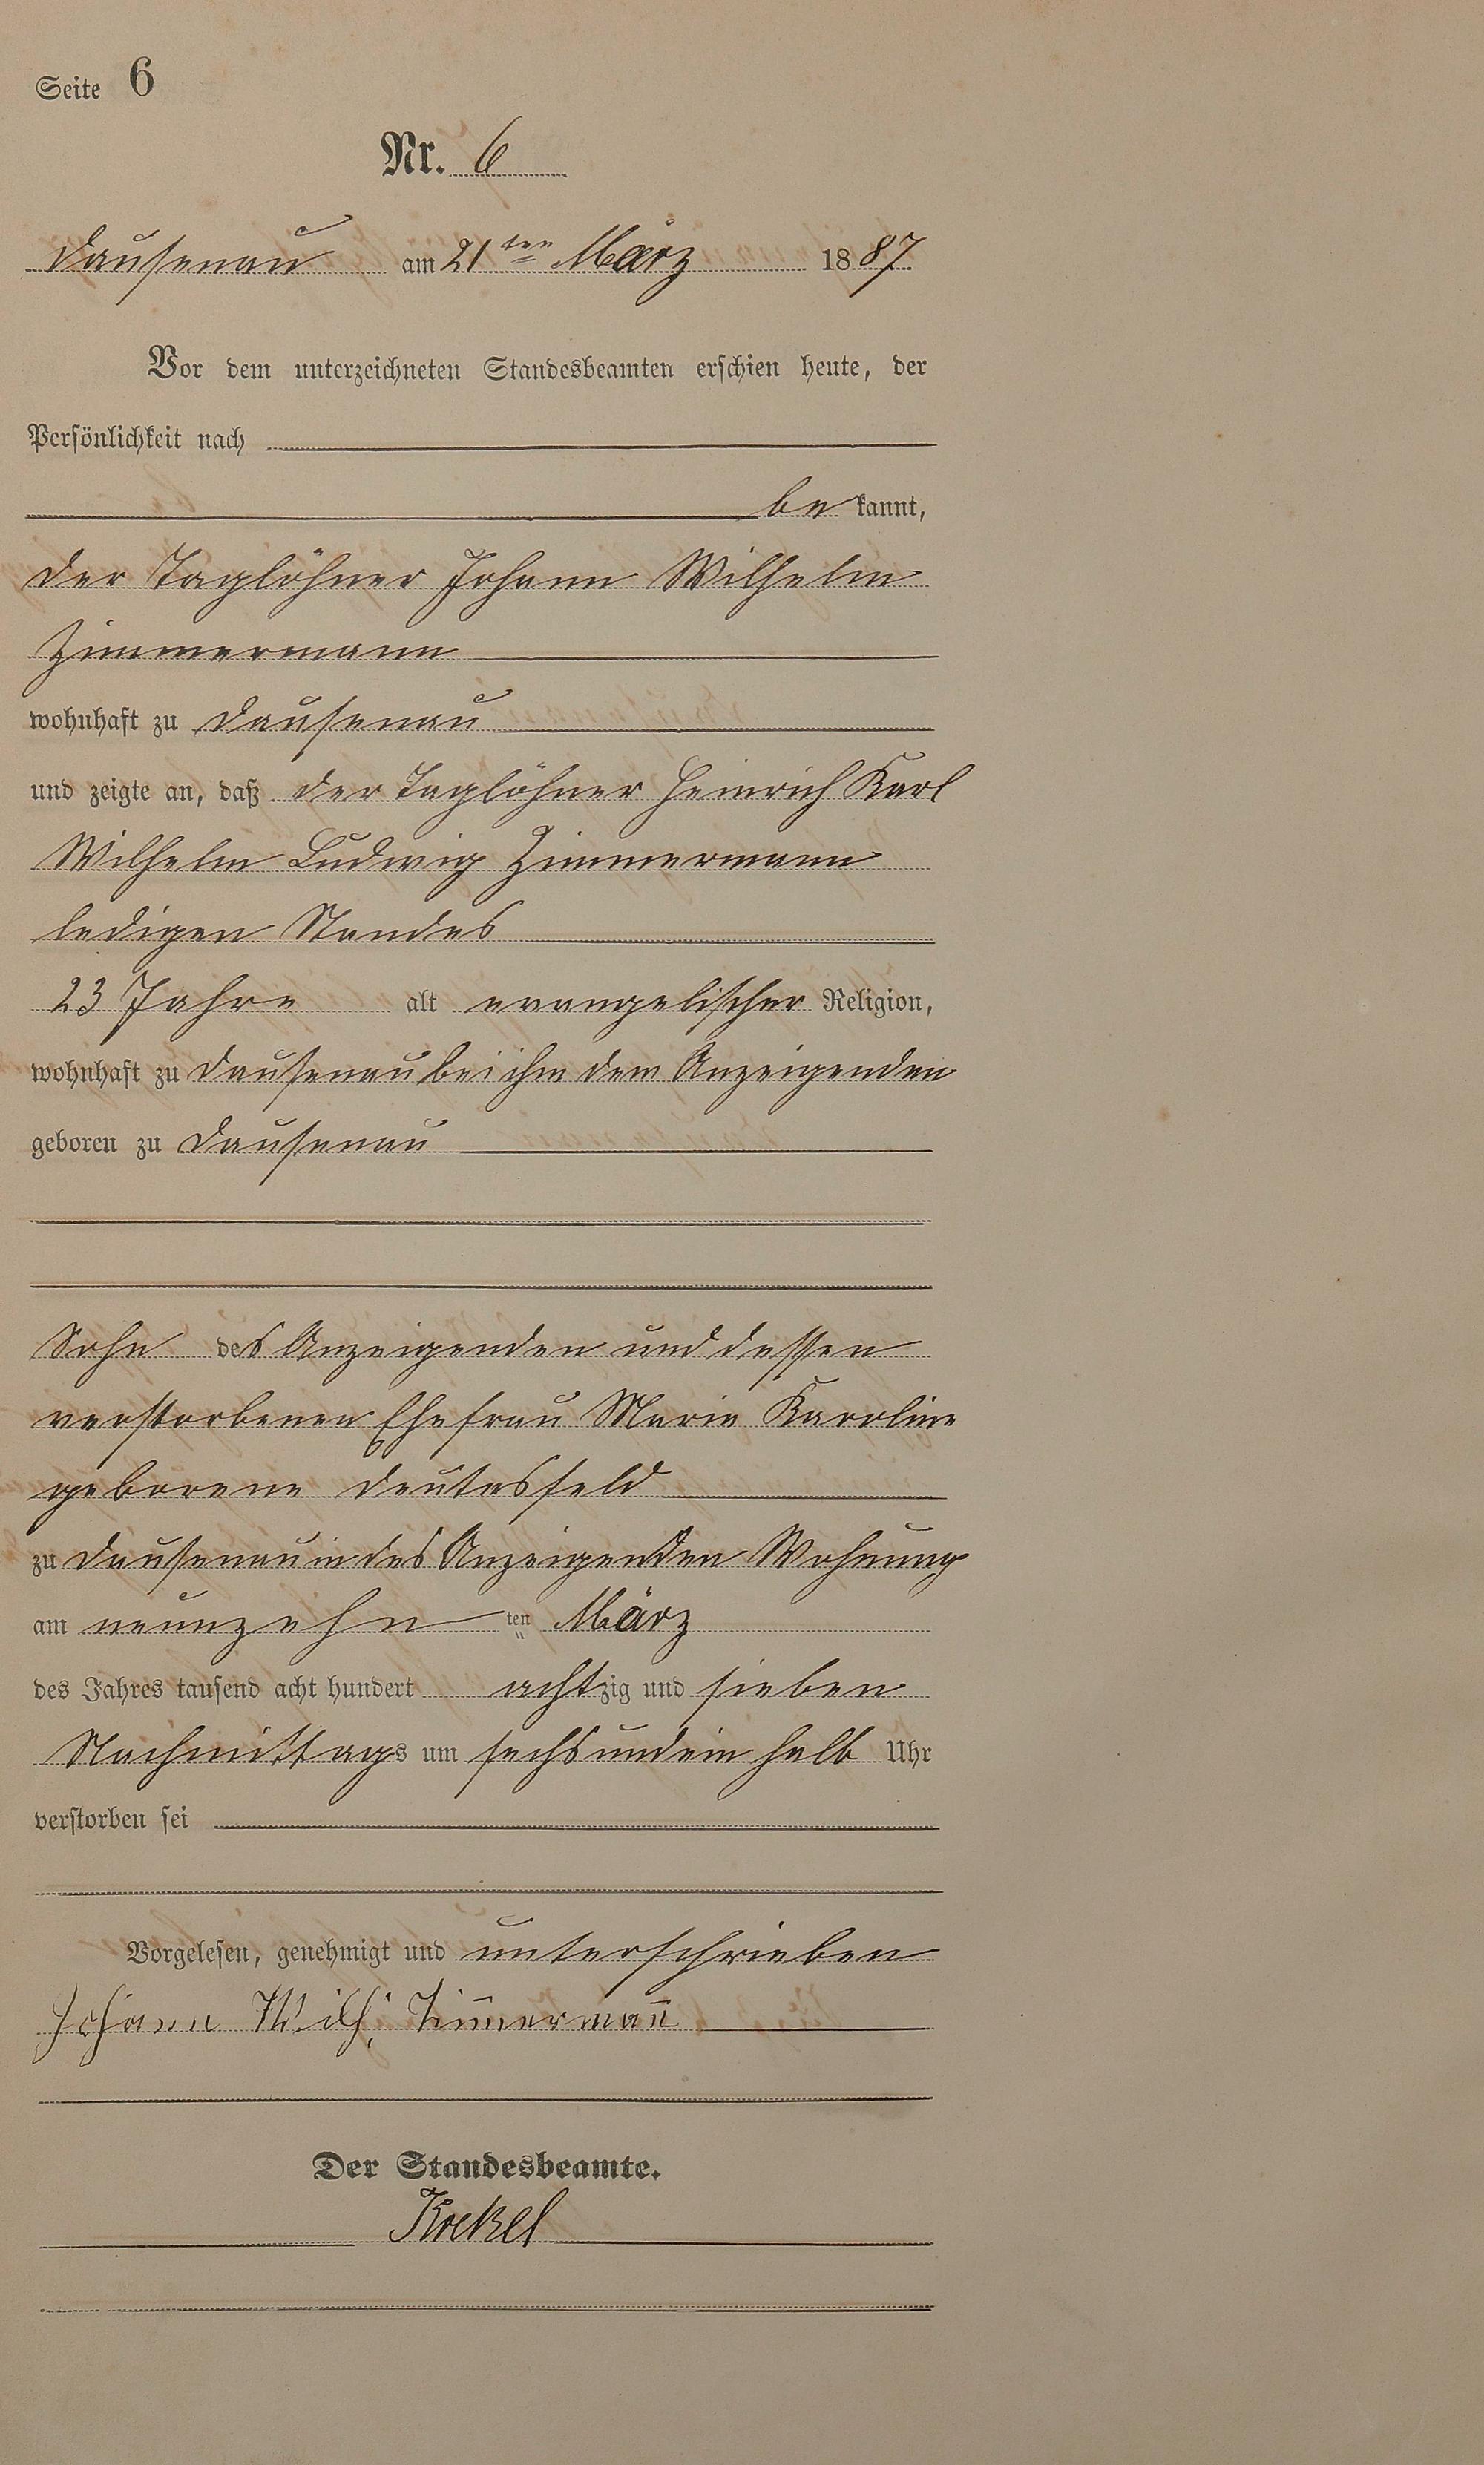 Seite 6
Nr. 6
Dausenau am 21ten März 1887
Vor dem unterzeichneten Standesbeamten erschien heute, der
Persönlichkeit nach
be kannt,
der Taglöhner Johann Wilhelm
Zimmermann
wohnhaft zu Dausenau
und zeigte an, daß der Taglöhner Heinrich Karl
Wilhelm Ludwig Zimmermann
ledigen Standes
23 Jahre alt evangelischer Religion,
wohnhaft zu Dausenau bei ihm dem Anzeigenden
geboren zu Dausenau
Sohn des Anzeigenden und dessen
verstorbenen Ehefrau Marie Karoline
geborene Deutesfeld
zu Dausenau in des Anzeigenden Wohnung
am neunzehn ten März
des Jahres tausend acht hundert achtzig und sieben
Nachmittags um sechs und ein halb Uhr
verstorben sei
Vorgelesen, genehmigt und unterschrieben
Johann Wilh. Zim̅erman̅
Der Standesbeamte.